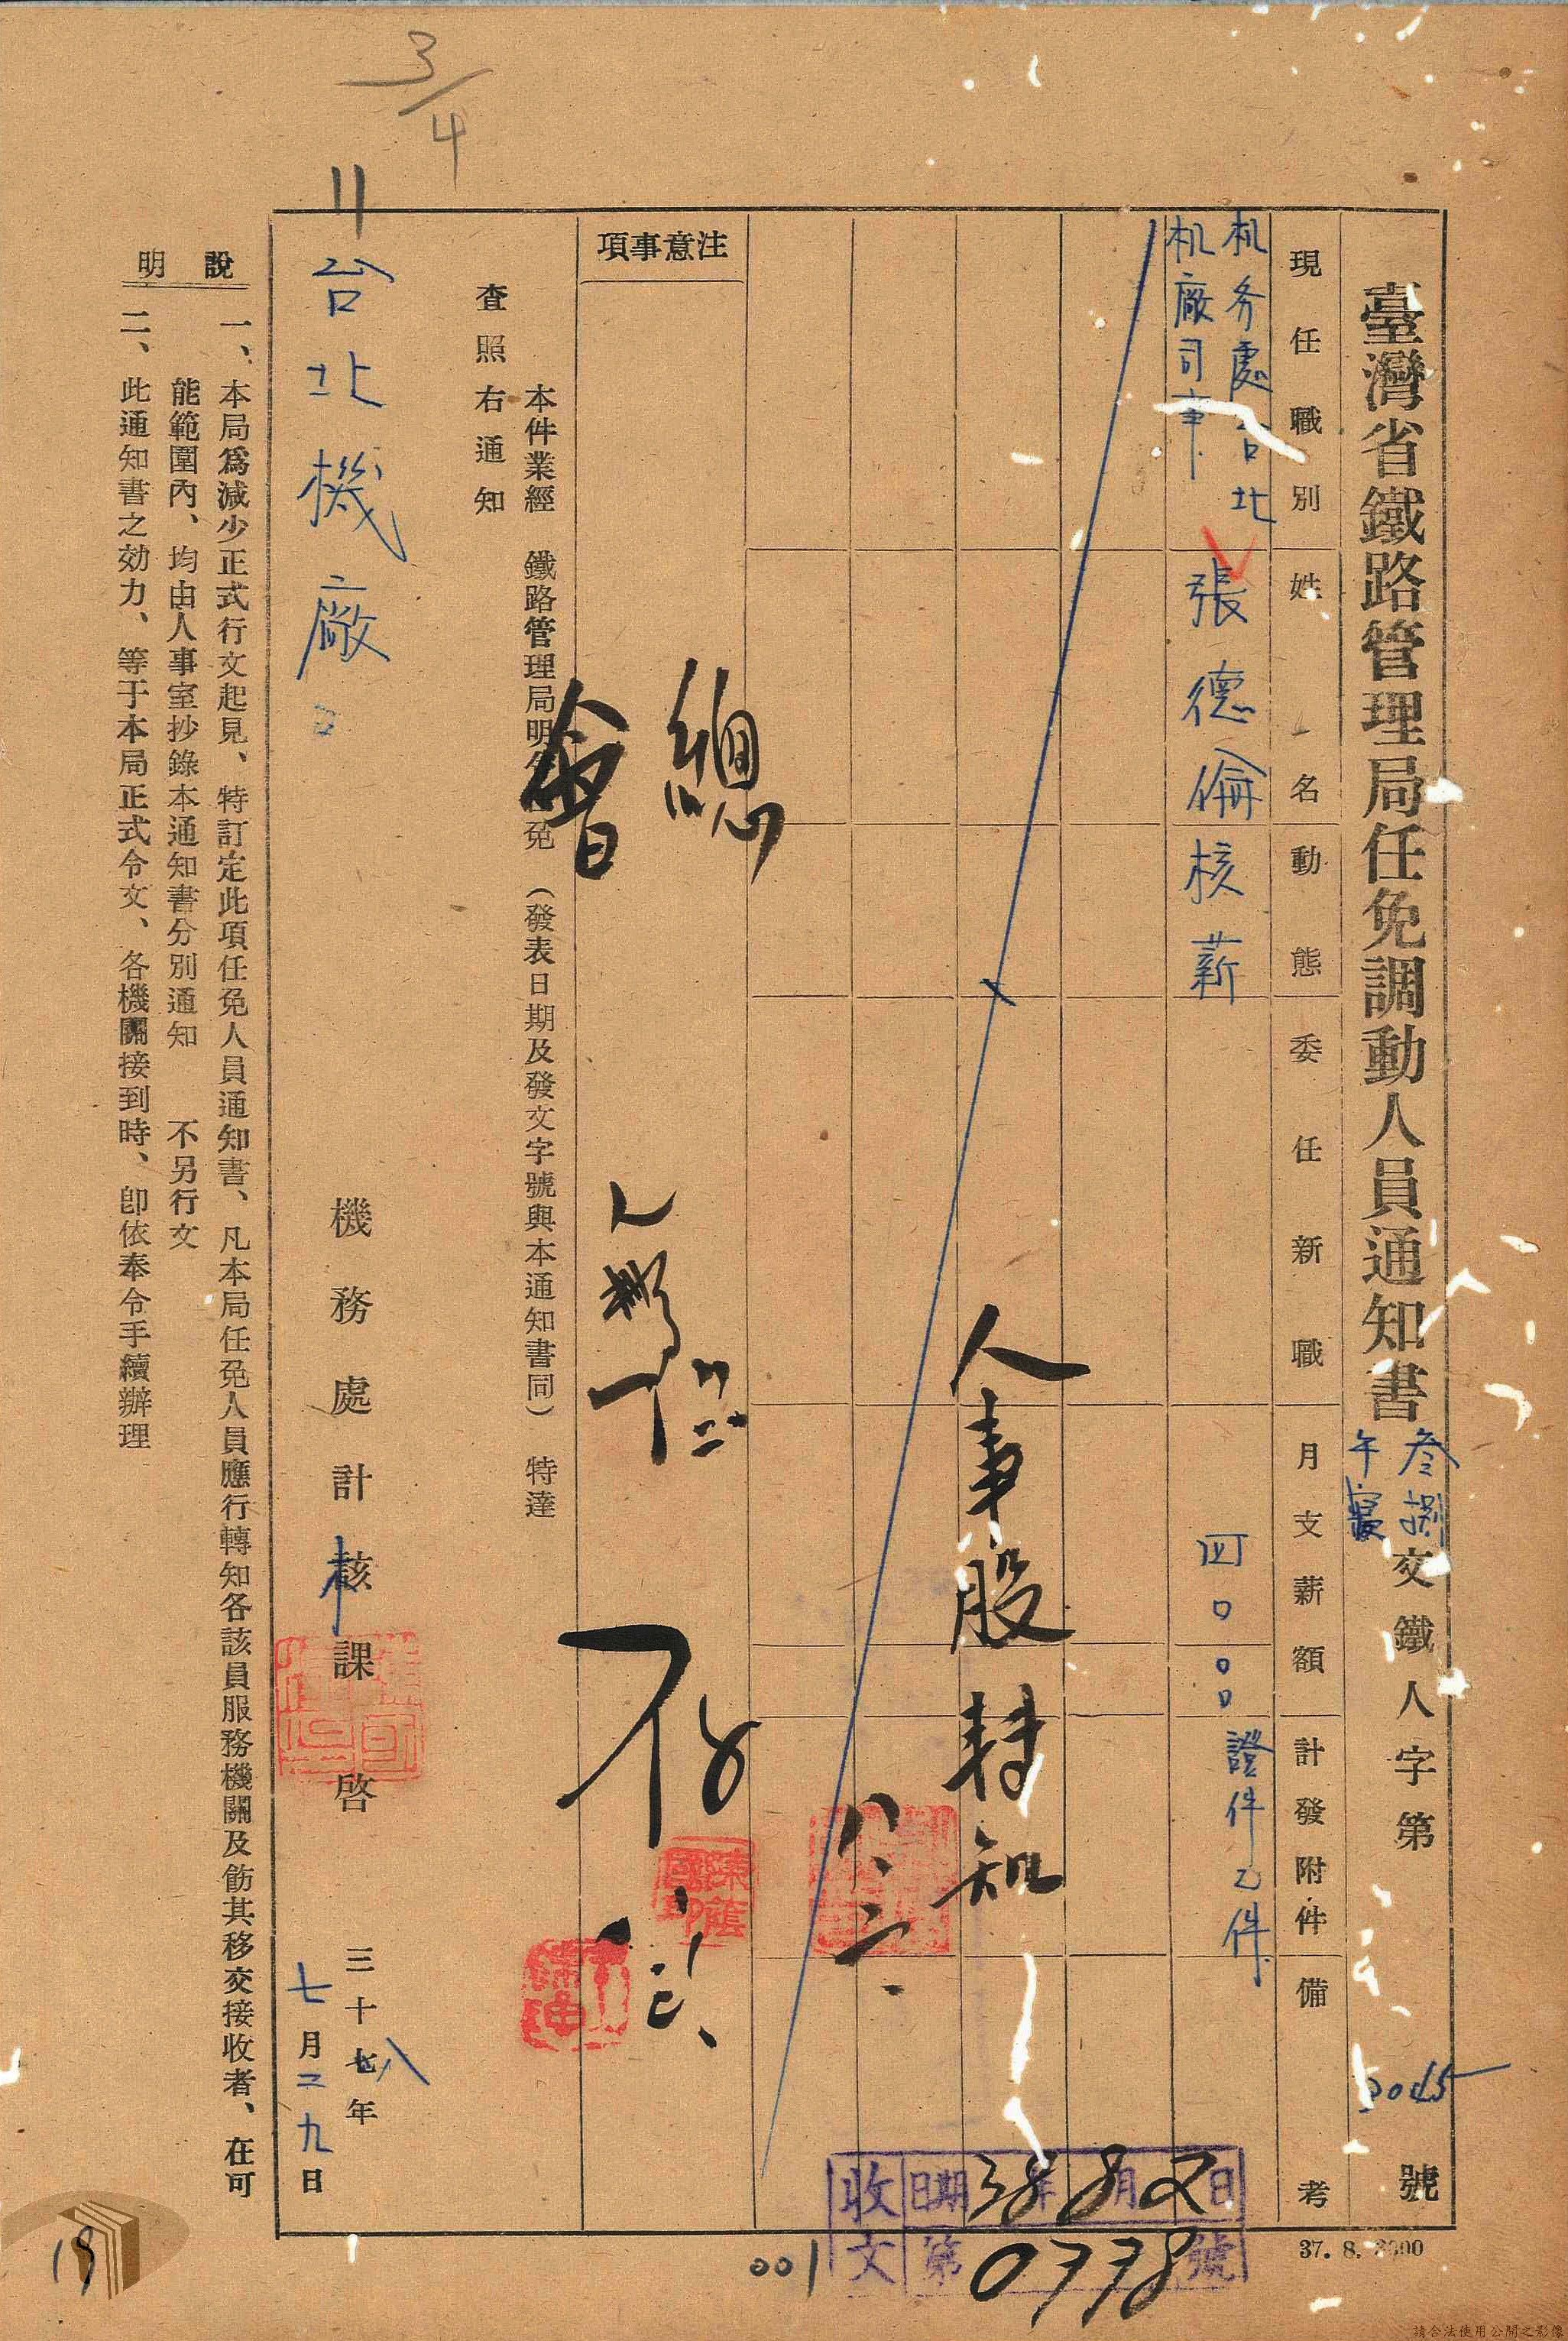 3/4
臺灣省鐵路管理局任免調動人員通知書
叁捌
午
交鐵人字第
號
現任職別
姓名
動態
委任新職
月支薪額
計發附件
備考
机务處台北
机廠司事
張德倫
核薪
四〇.〇〇
證件乙件
人事股
知
八、二、
注意事項
總
會
本件業經 鐵路管理局明令任免 (發表日期及發文字號與本通知書同) 特達
查照右通知
台北機廠
機務處計核課啓
三十七八年
七月二九日
說明
一、本局爲減少正式行文起見、特訂定此項任免人員通知書、凡本局任免人員應行轉知各該員服務機關及飭其移交接收者、在可
能範圍內、均由人事室抄錄本通知書分別通知 不另行文
二、此通知書之効力、等于本局正式令文、各機關接到時、卽依奉令手續辦理
收文
日期38年8月2日
第0778號
001
37. 8. 3000
19
請合法使用公開之影像